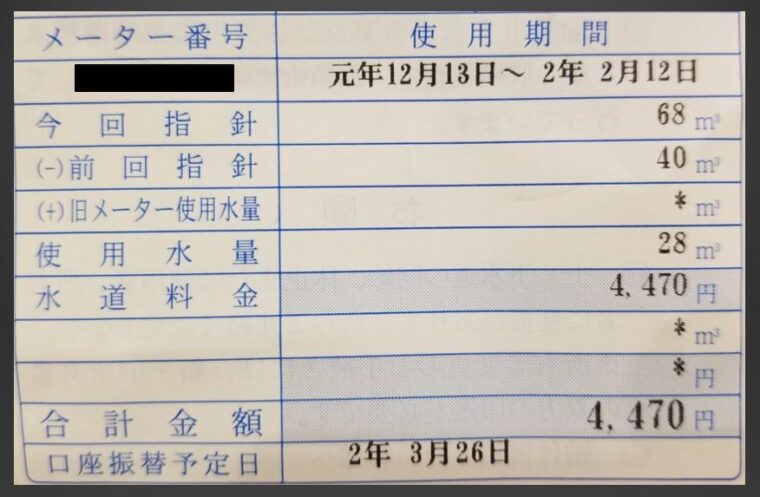 メーター番号 使用期間
元年12月13日～ 2年 2月12日
今回指針 68 m³
(-)前回指針 40 m³
(+)旧メーター使用水量 * m³
使用水量 28 m³
水道料金 4,470 円
* m³
* 円
合計金額 4,470 円
口座振替予定日 2年 3月26日